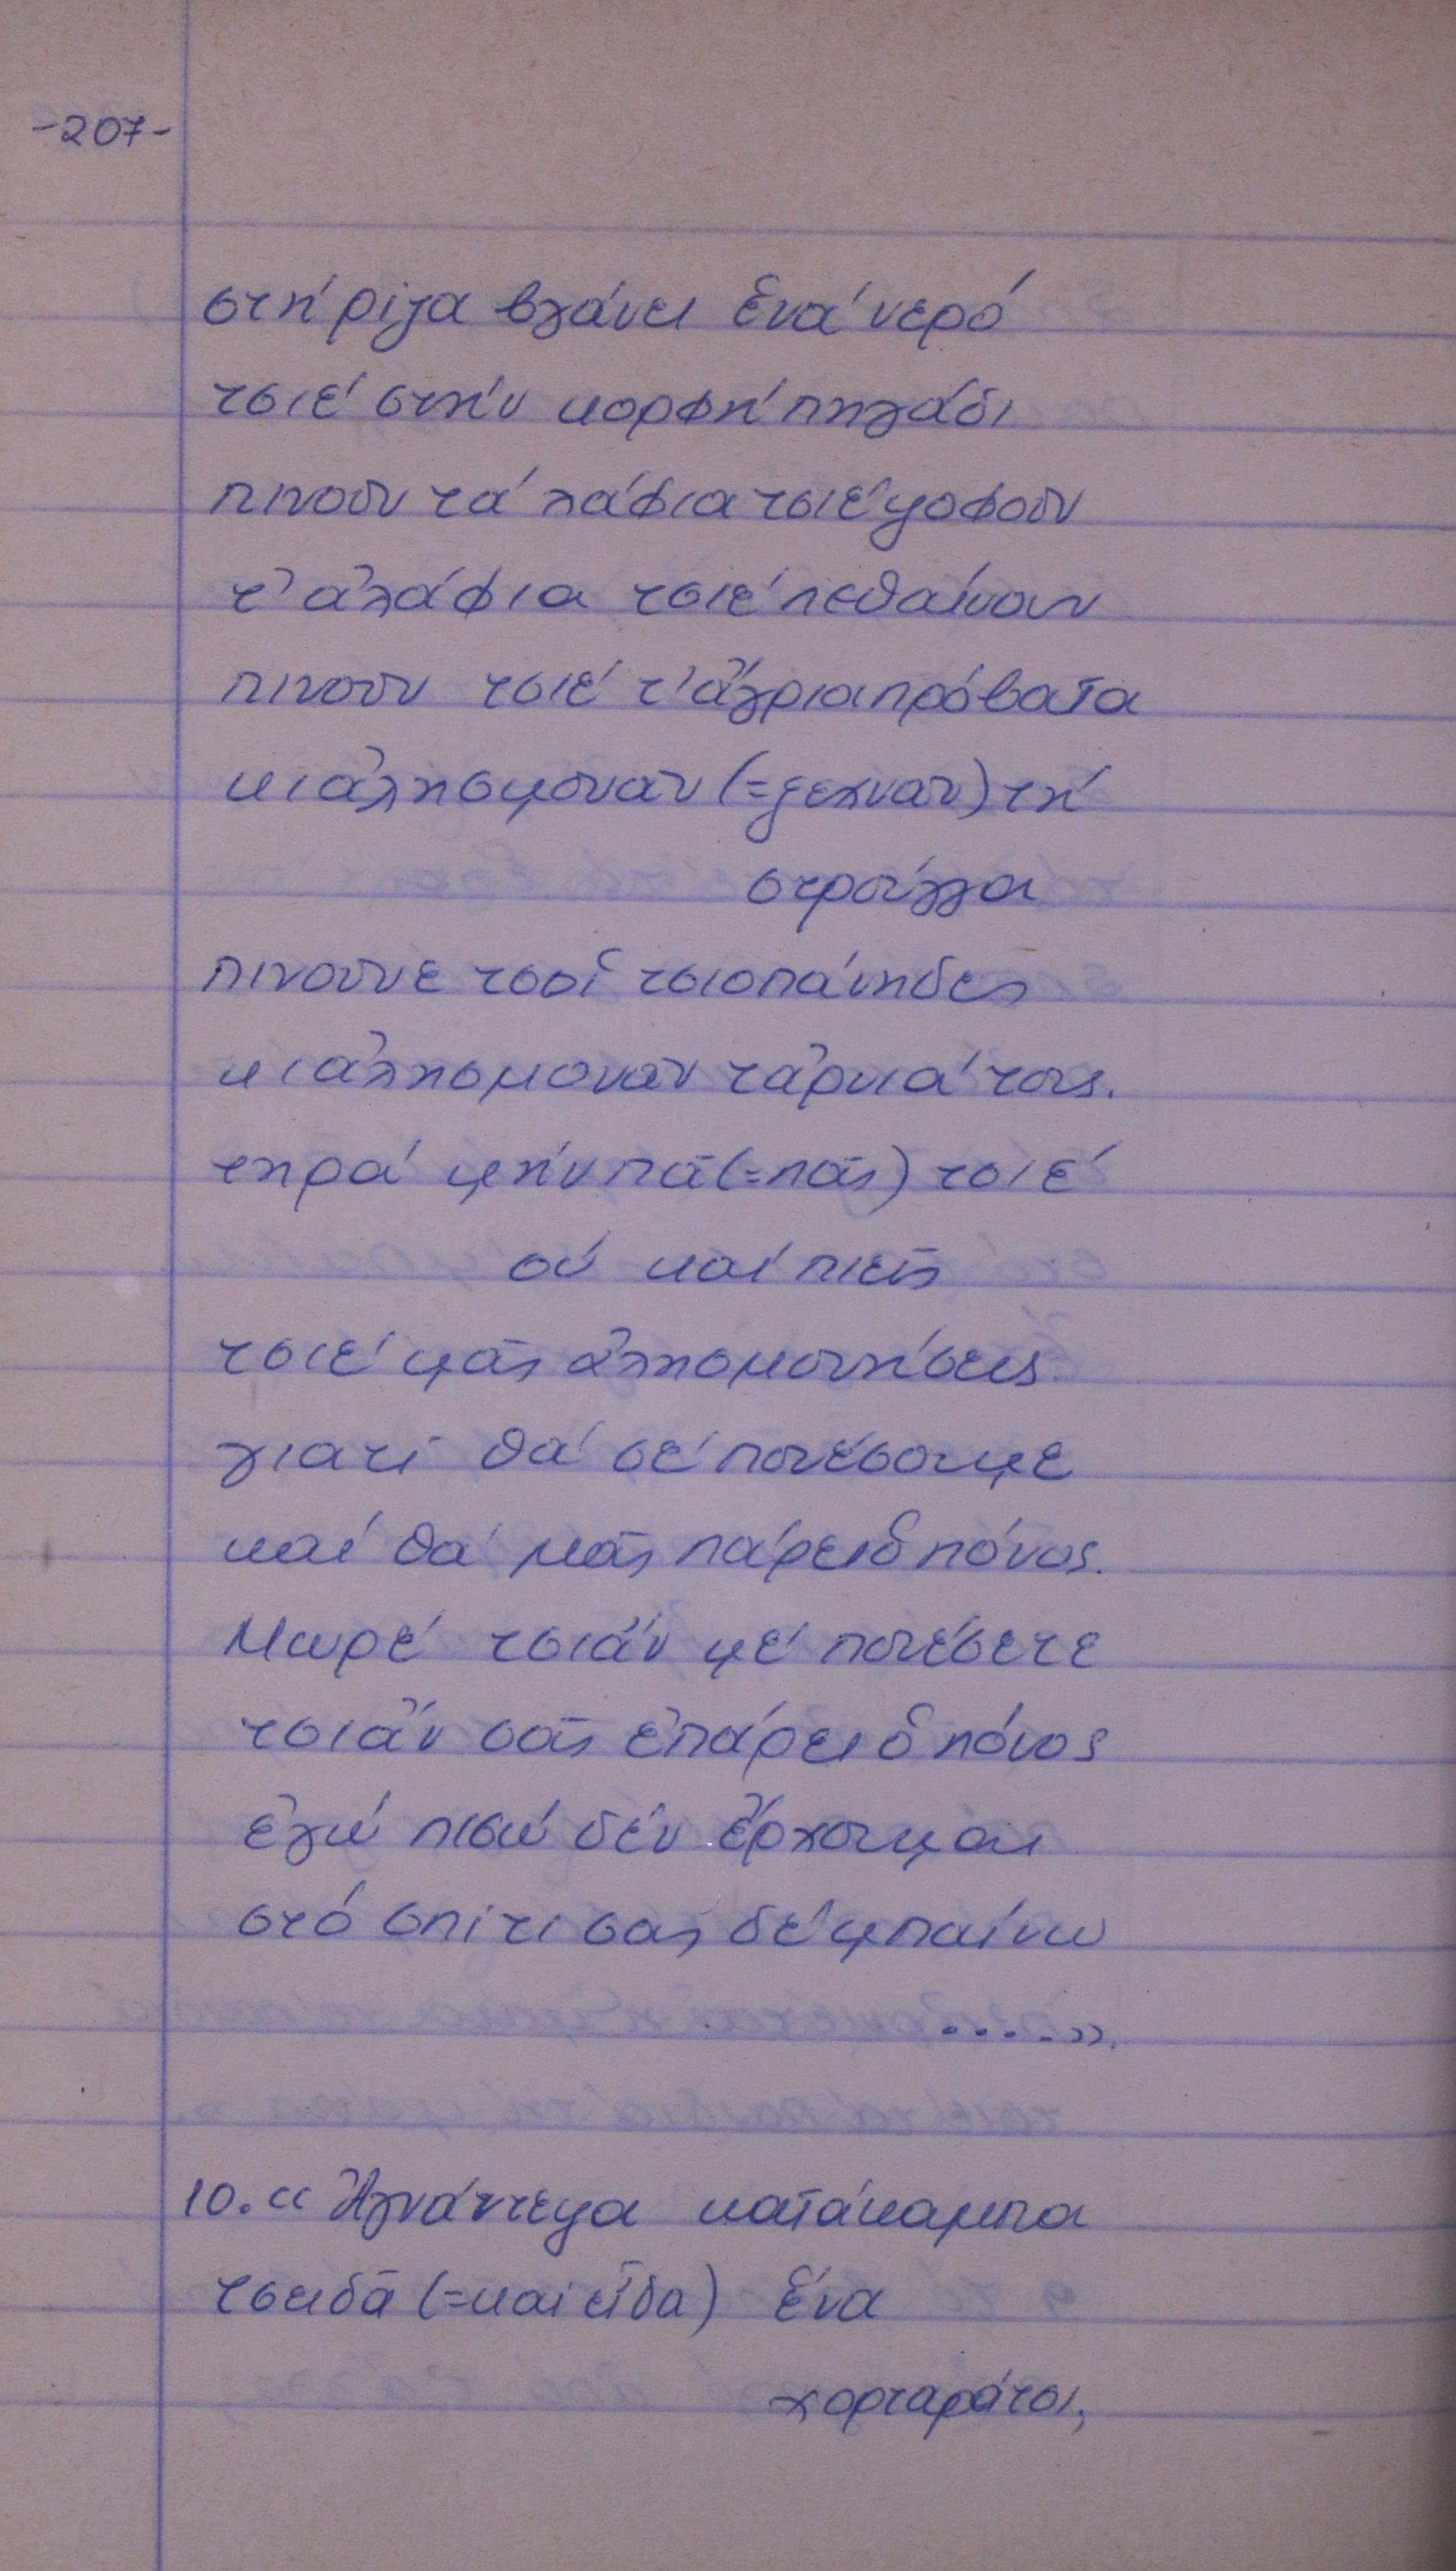 -207-
στή ρίζα βγάνει ἕνα νερό
τσιέ στήν κορφή πηγάδι
πινουν τά λάφια τσιέ ψοφουν
τ' ἀλάφια τσιέ πεθαίνουν
πινουν τσιέ τ' ἄγρια πρόβατα
κι ἀλησμοναν (=ξεχναν) τή
στρούγγα
πινουνε τσοί τσιοπάνηδες
κι ἀλησμοναν τἀρνιά τους.
τηρά μήν πᾶ (=πᾶς) τσιέ
σύ καί πιεῖς
τσιέ μᾶς ἀλησμονήσεις
γιατί θά σέ πονέσουμε
καί θά μᾶς πάρει ὁ πόνος.
Μωρέ τσιἄν μέ πονέσετε
τσιἄν σᾶς ἐπάρει ὁ πόνος
ἐγώ πισώ δέν ἔρχουμαι
στό σπίτι σας δέ μπαίνω
.....».
10. «Ἀγνάντεψα κατάκαμπα
τσειδᾶ (=καί εἶδα) ἕνα
χορταράτσι,